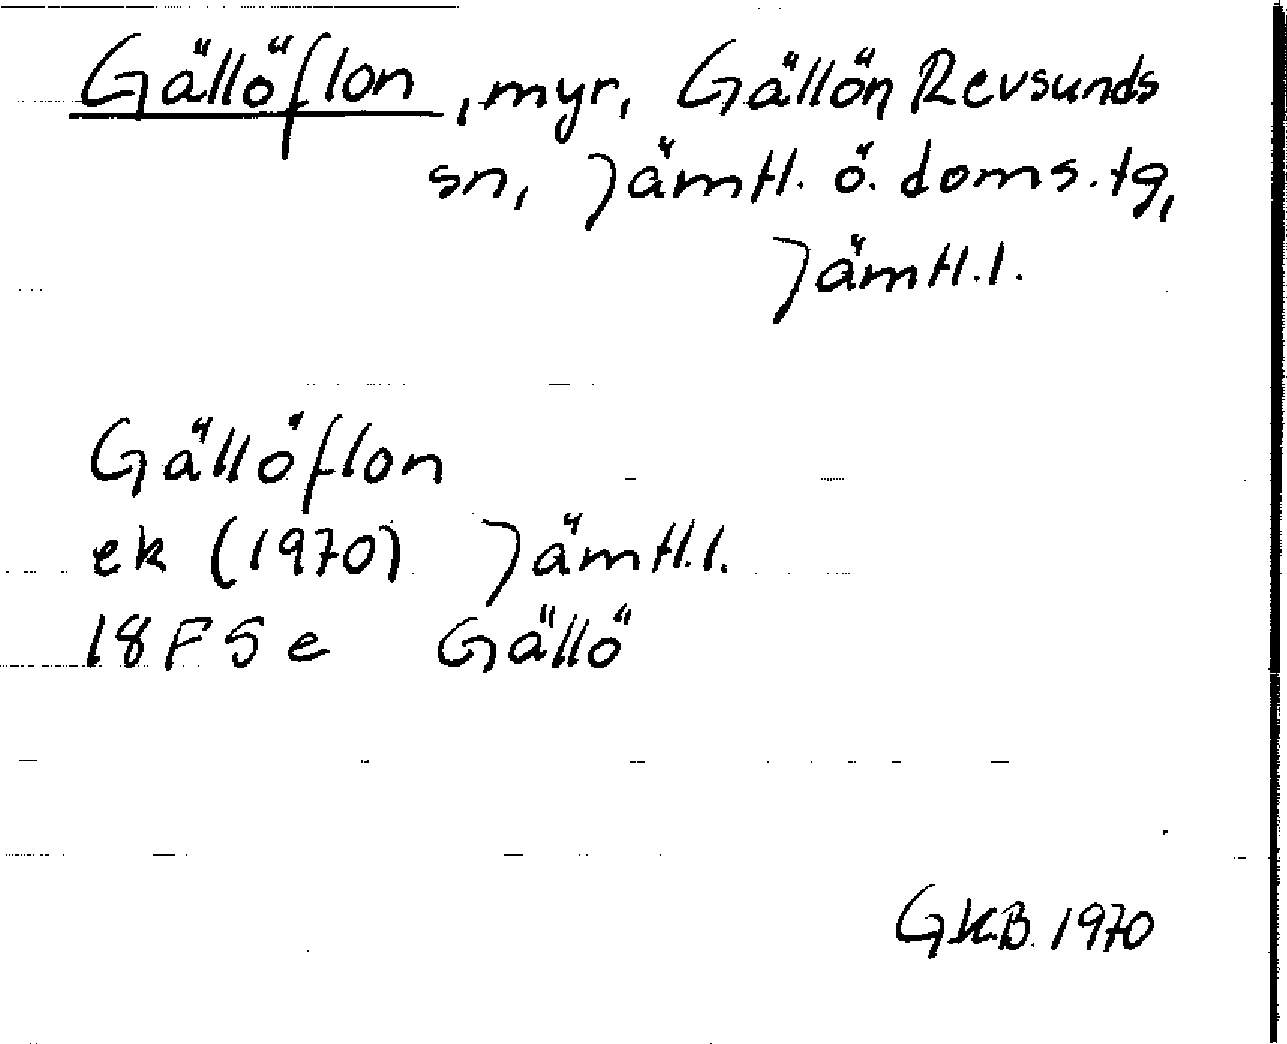 Gällöflon, myr, Gällön Revsunds
sn, Jämtl. ö. doms.tg,
Jämtl.l.
Gällöflon
ek (1970) Jämtl.l.
18F5e Gällö
GKB. 1970